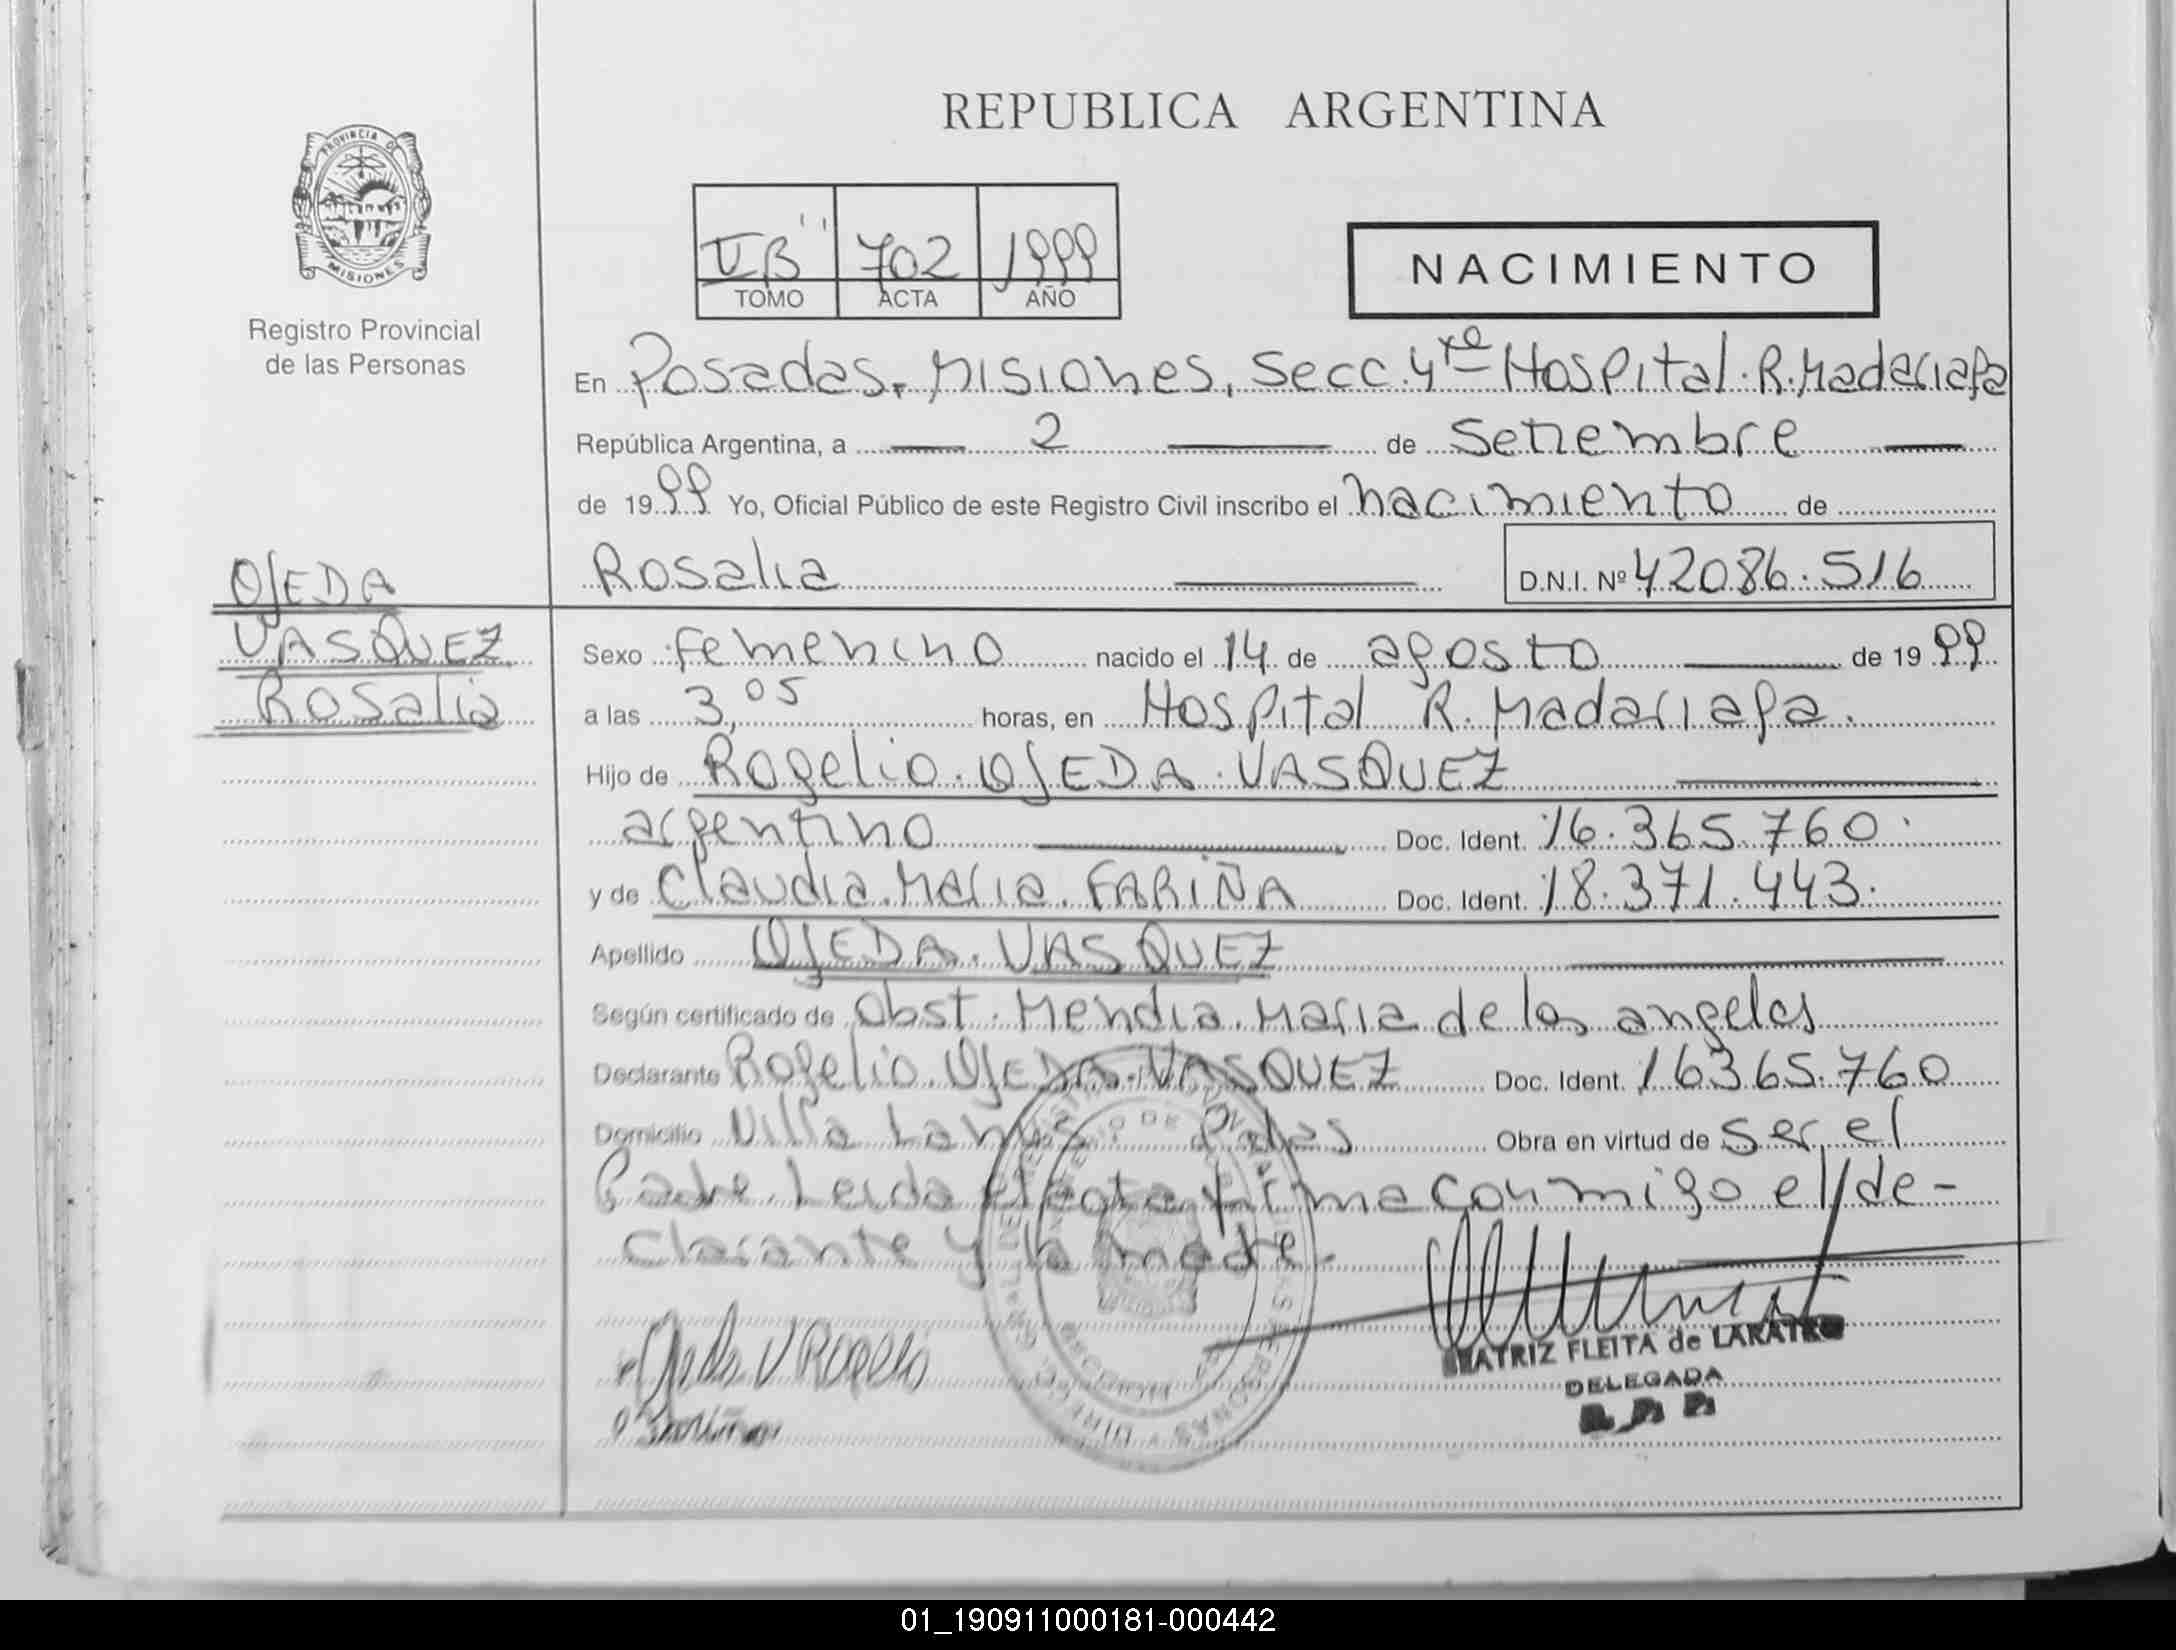 REPUBLICA ARGENTINA
PROVINCIA DE
MISIONES
Registro Provincial
de las Personas
702 1999
TOMO ACTA AÑO
NACIMIENTO
En Posadas, Misiones, Secc. 4ta Hospital R. Madariaga
República Argentina, a 2 de Setiembre
de 1999 Yo, Oficial Público de este Registro Civil inscribo el nacimiento de
Rosalia D.N.I. Nº 42086.516
OJEDA
VASQUEZ
Rosalia
Sexo femenino nacido el 14 de agosto de 1999
a las 3,05 horas, en Hospital R. Madariaga.
Hijo de Rogelio OJEDA VASQUEZ
argentino Doc. Ident. 16.365.760.
y de Claudia Maria FARIÑA Doc. Ident. 18.371.443.
Apellido OJEDA VASQUEZ
Según certificado de Obst. Mendia Maria de los angeles
Declarante Rogelio OJEDA VASQUEZ Doc. Ident. 16365.760
Domicilio Villa Lanus Pdas Obra en virtud de ser el
Padre. Leida el acta firma conmigo el de-
clarante y la madre.
Ojeda V Rogelio
BEATRIZ FLEITA de
DELEGADA
01_190911000181-000442